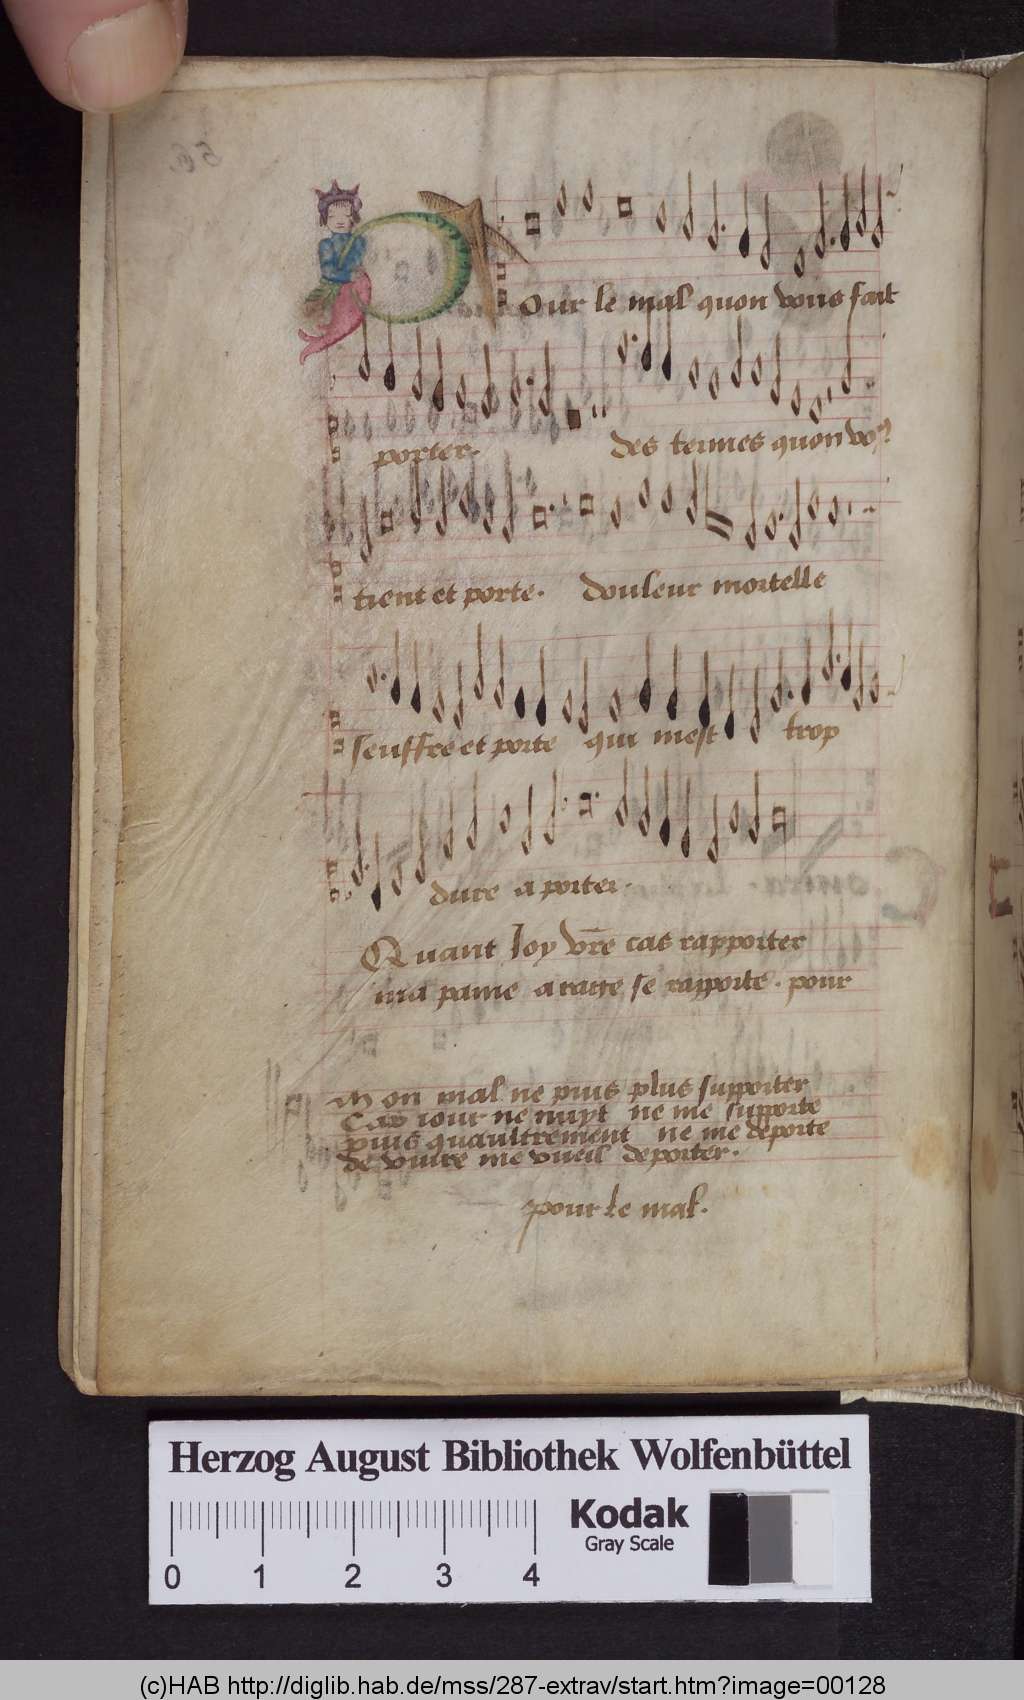 Pour le mal quon vous fait
porter.
des termes quon vo9
tient et porte. douleur mortelle
seuffre et porte qui mest trop
dure a porter.
Quant Joy vre cas rapporter
ma paine a rage se rapporte. pour
Mon mal ne puis plus supporter
Car iour ne nuyt ne me supporte
puis quaultrement ne me deporte
de viure me vueil deporter.
pour le mal.
Herzog August Bibliothek Wolfenbüttel
Kodak
Gray Scale
0 1 2 3 4
(c)HAB http://diglib.hab.de/mss/287-extrav/start.htm?image=00128